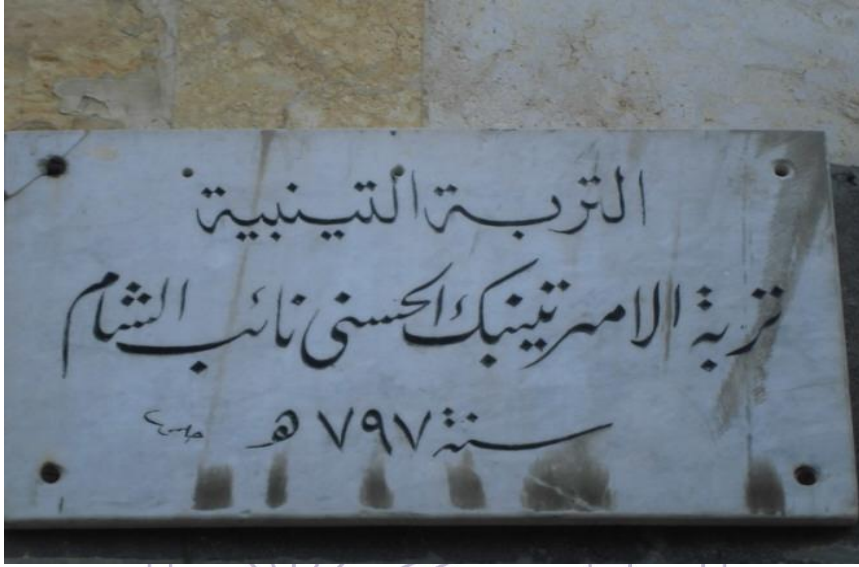 التربة التينبية
تربة الامير تينبك الحسنى نائب الشام
سنة ٧٩٧ هـ